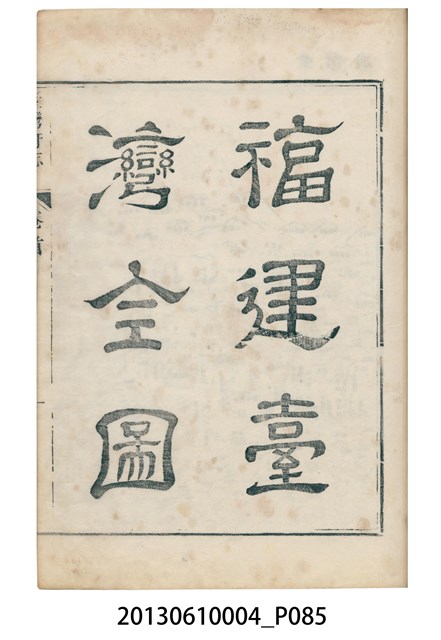 福建臺
灣全圖
20130610004_P085